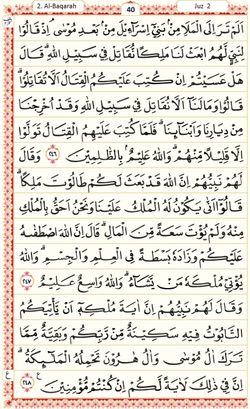 2. Al-Baqarah 40 Juz 2
اَلَمْ تَرَ اِلَى الْمَلَاِ مِنْۢ بَنِيْٓ اِسْرَآءِيْلَ مِنْۢ بَعْدِ مُوْسٰى اِذْ قَالُوْا
لِنَبِيٍّ لَّهُمُ ابْعَثْ لَنَا مَلِكًا نُّقَاتِلْ فِيْ سَبِيْلِ اللّٰهِ ۗ قَالَ
هَلْ عَسَيْتُمْ اِنْ كُتِبَ عَلَيْكُمُ الْقِتَالُ اَلَّا تُقَاتِلُوْا ۗ
قَالُوْا وَمَا لَنَآ اَلَّا نُقَاتِلَ فِيْ سَبِيْلِ اللّٰهِ وَقَدْ اُخْرِجْنَا
مِنْ دِيَارِنَا وَاَبْنَآئِنَا ۗ فَلَمَّا كُتِبَ عَلَيْهِمُ الْقِتَالُ تَوَلَّوْا
اِلَّا قَلِيْلًا مِّنْهُمْ ۗ وَاللّٰهُ عَلِيْمٌۢ بِالظّٰلِمِيْنَ ٢٤٦ وَقَالَ
لَهُمْ نَبِيُّهُمْ اِنَّ اللّٰهَ قَدْ بَعَثَ لَكُمْ طَالُوْتَ مَلِكًا ۗ
قَالُوْٓا اَنّٰى يَكُوْنُ لَهُ الْمُلْكُ عَلَيْنَا وَنَحْنُ اَحَقُّ بِالْمُلْكِ
مِنْهُ وَلَمْ يُؤْتَ سَعَةً مِّنَ الْمَالِ ۗ قَالَ اِنَّ اللّٰهَ اصْطَفٰىهُ
عَلَيْكُمْ وَزَادَهٗ بَسْطَةً فِى الْعِلْمِ وَالْجِسْمِ ۗ وَاللّٰهُ
يُؤْتِيْ مُلْكَهٗ مَنْ يَّشَآءُ ۗ وَاللّٰهُ وَاسِعٌ عَلِيْمٌ ٢٤٧
وَقَالَ لَهُمْ نَبِيُّهُمْ اِنَّ اٰيَةَ مُلْكِهٖٓ اَنْ يَّأْتِيَكُمُ
التَّابُوْتُ فِيْهِ سَكِيْنَةٌ مِّنْ رَّبِّكُمْ وَبَقِيَّةٌ مِّمَّا
تَرَكَ اٰلُ مُوْسٰى وَاٰلُ هٰرُوْنَ تَحْمِلُهُ الْمَلٰۤئِكَةُ ۗ
اِنَّ فِيْ ذٰلِكَ لَاٰيَةً لَّكُمْ اِنْ كُنْتُمْ مُّؤْمِنِيْنَ ٢٤٨